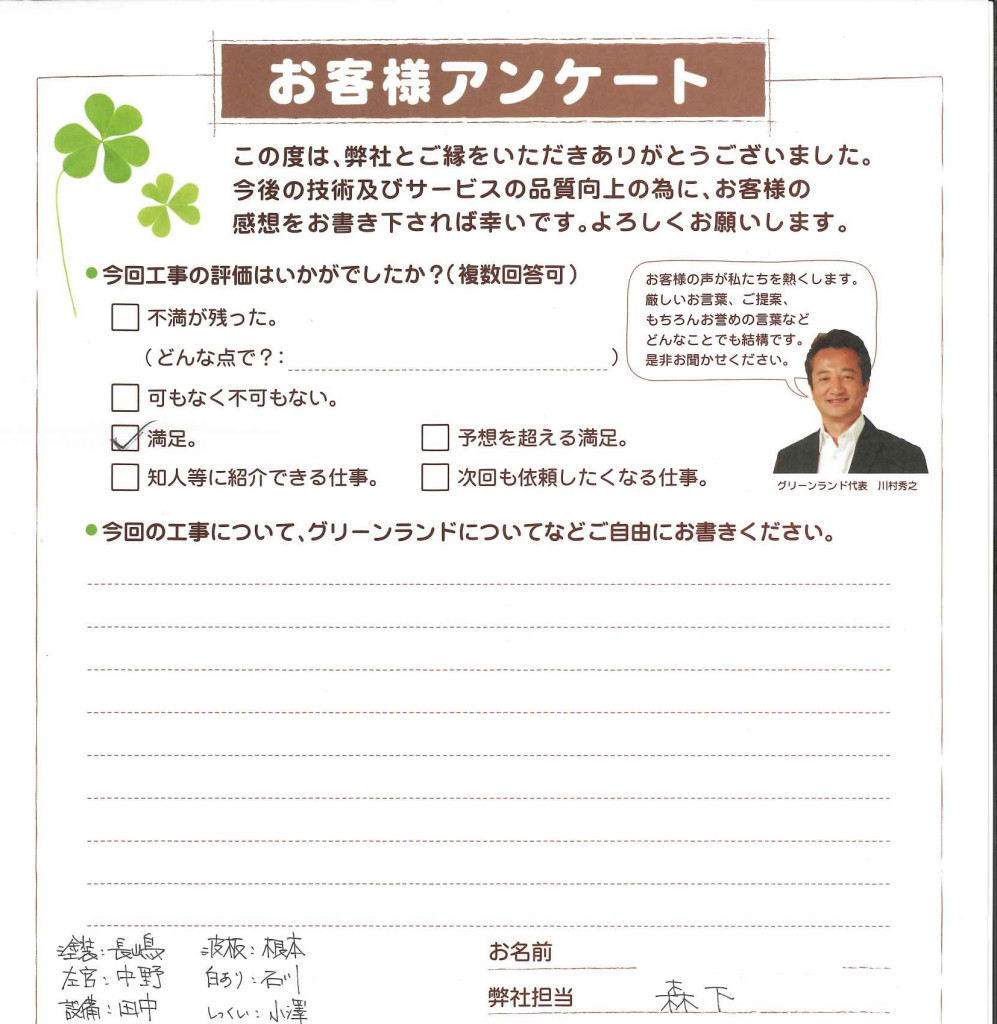 お客様アンケート
この度は、弊社とご縁をいただきありがとうございました。
今後の技術及びサービスの品質向上の為に、お客様の
感想をお書き下されば幸いです。よろしくお願いします。
●今回工事の評価はいかがでしたか?(複数回答可)
お客様の声が私たちを熱くします。
厳しいお言葉、ご提案、
もちろんお誉めの言葉など
どんなことでも結構です。
是非お聞かせください。
不満が残った。
(どんな点で?: )
可もなく不可もない。
満足。 予想を超える満足。
知人等に紹介できる仕事。 次回も依頼したくなる仕事。
グリーンランド代表 川村秀之
●今回の工事について、グリーンランドについてなどご自由にお書きください。
塗装:長嶋 波板:根本
左官:中野 白あり:石川
設備:田中 しっくい:小澤
お名前
弊社担当 森下